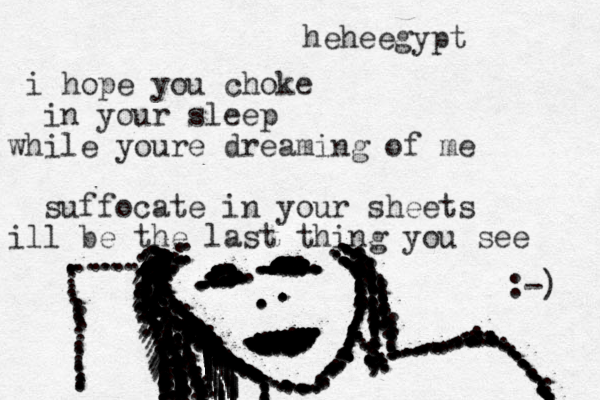 heheegypt
i hope you choke
in your sleep
while youre dreaming of me
suffocate in your sheets
ill be the last thing you see
:-)